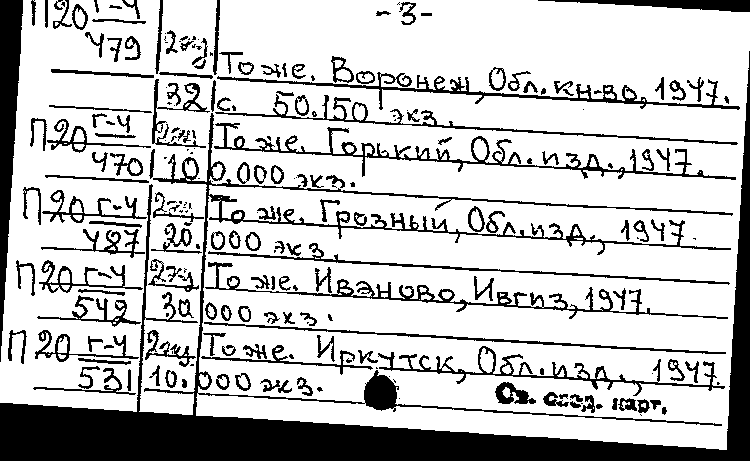 -3-
П20 Г-4
479 2экз. То же. Воронеж, Обл. кн-во, 1947.
32 с. 50.150 экз.
П20 Г-4 2экз То же. Горький, Обл. изд., 1947.
470 10 0.000 экз.
П20 Г-4 2экз То же. Грозный, Обл. изд., 1947
487 20. 000 экз.
П20 Г-4 2экз То же. Иваново, Ивгиз, 1947.
542 30 000 экз.
П20 Г-4 2экз То же. Иркутск, Обл. изд., 1947.
531 10. 000 экз.
См. след. карт.